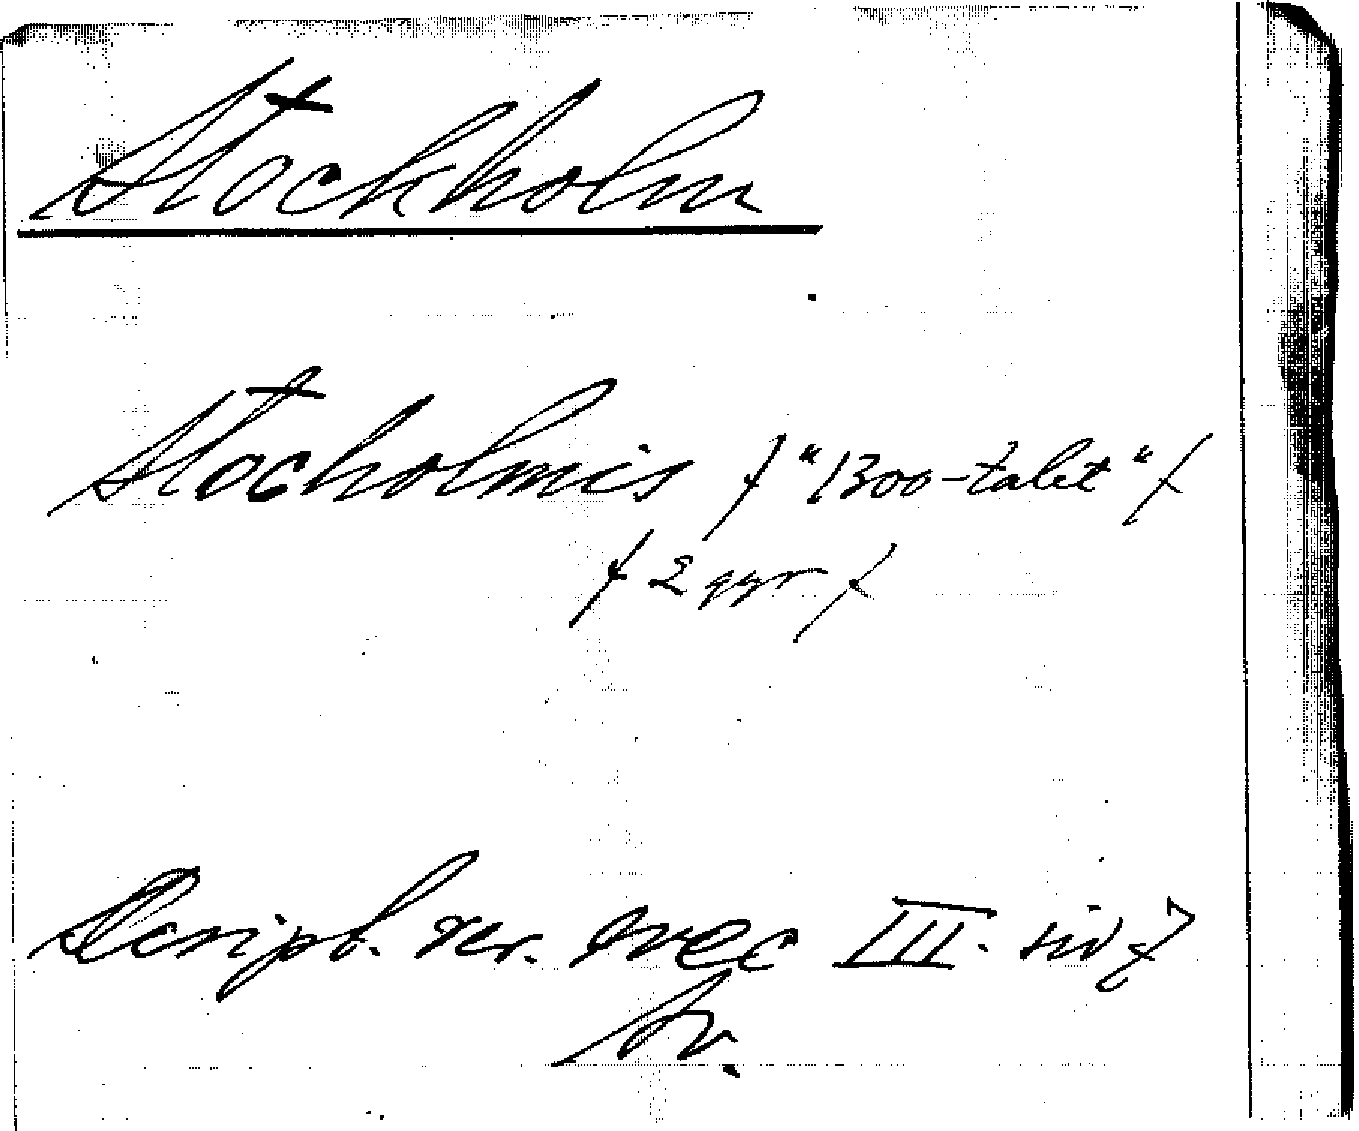 Stockholm
Stocholmis / "1300-talet" /
/ 2 ggr /
Script. rer. svec III. sid 7
Sv.